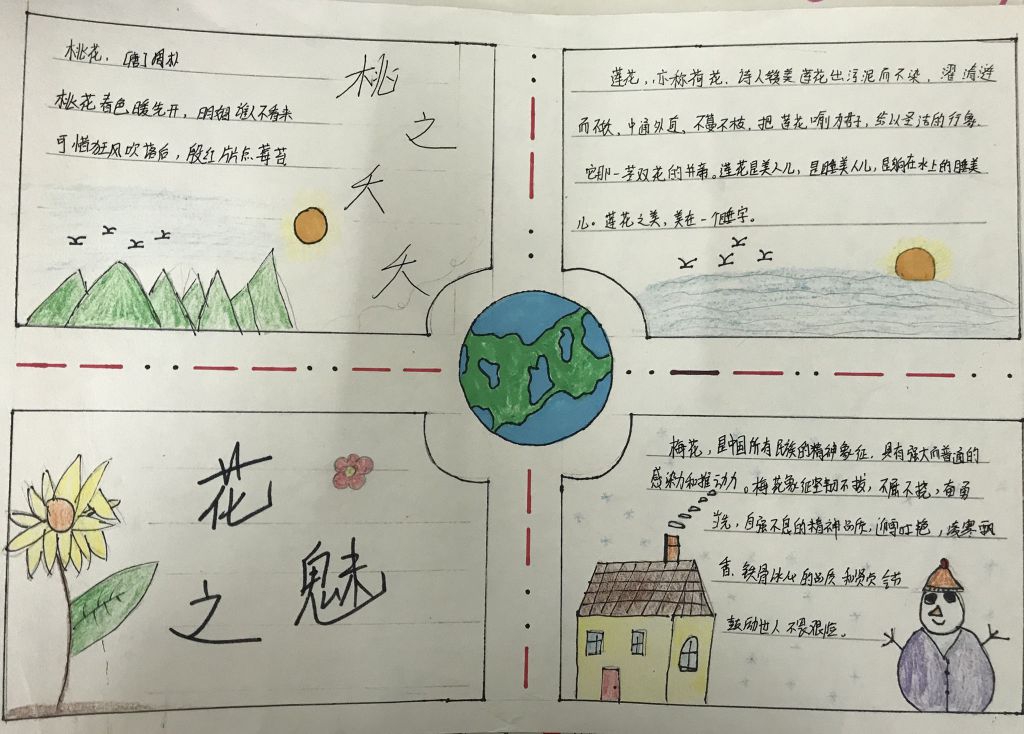 桃花，［唐］周朴
桃花春色暖先开，明媚谁人不看来
可惜狂风吹落后，殷红片片点莓苔
桃之夭夭
莲花，亦称荷花，诗人赞美莲花出污泥而不染，濯清涟
而不妖，中通外直，不蔓不枝，把莲花喻为君子，给以圣洁的形象．
它那一茎双花的并蒂。莲花是美人儿，是睡美人儿，是躺在水上的睡美
儿。莲花之美，美在一个睡字。
花之魅
梅花，是中国所有民族的精神象征，具有强大而普通的
感染力和推动力。梅花象征坚韧不拔，不屈不挠，奋勇
当先，自强不息的精神品质，迎雪吐艳，凌寒飘
香，铁骨冰心的品质和坚贞气节
鼓励世人不畏艰险。